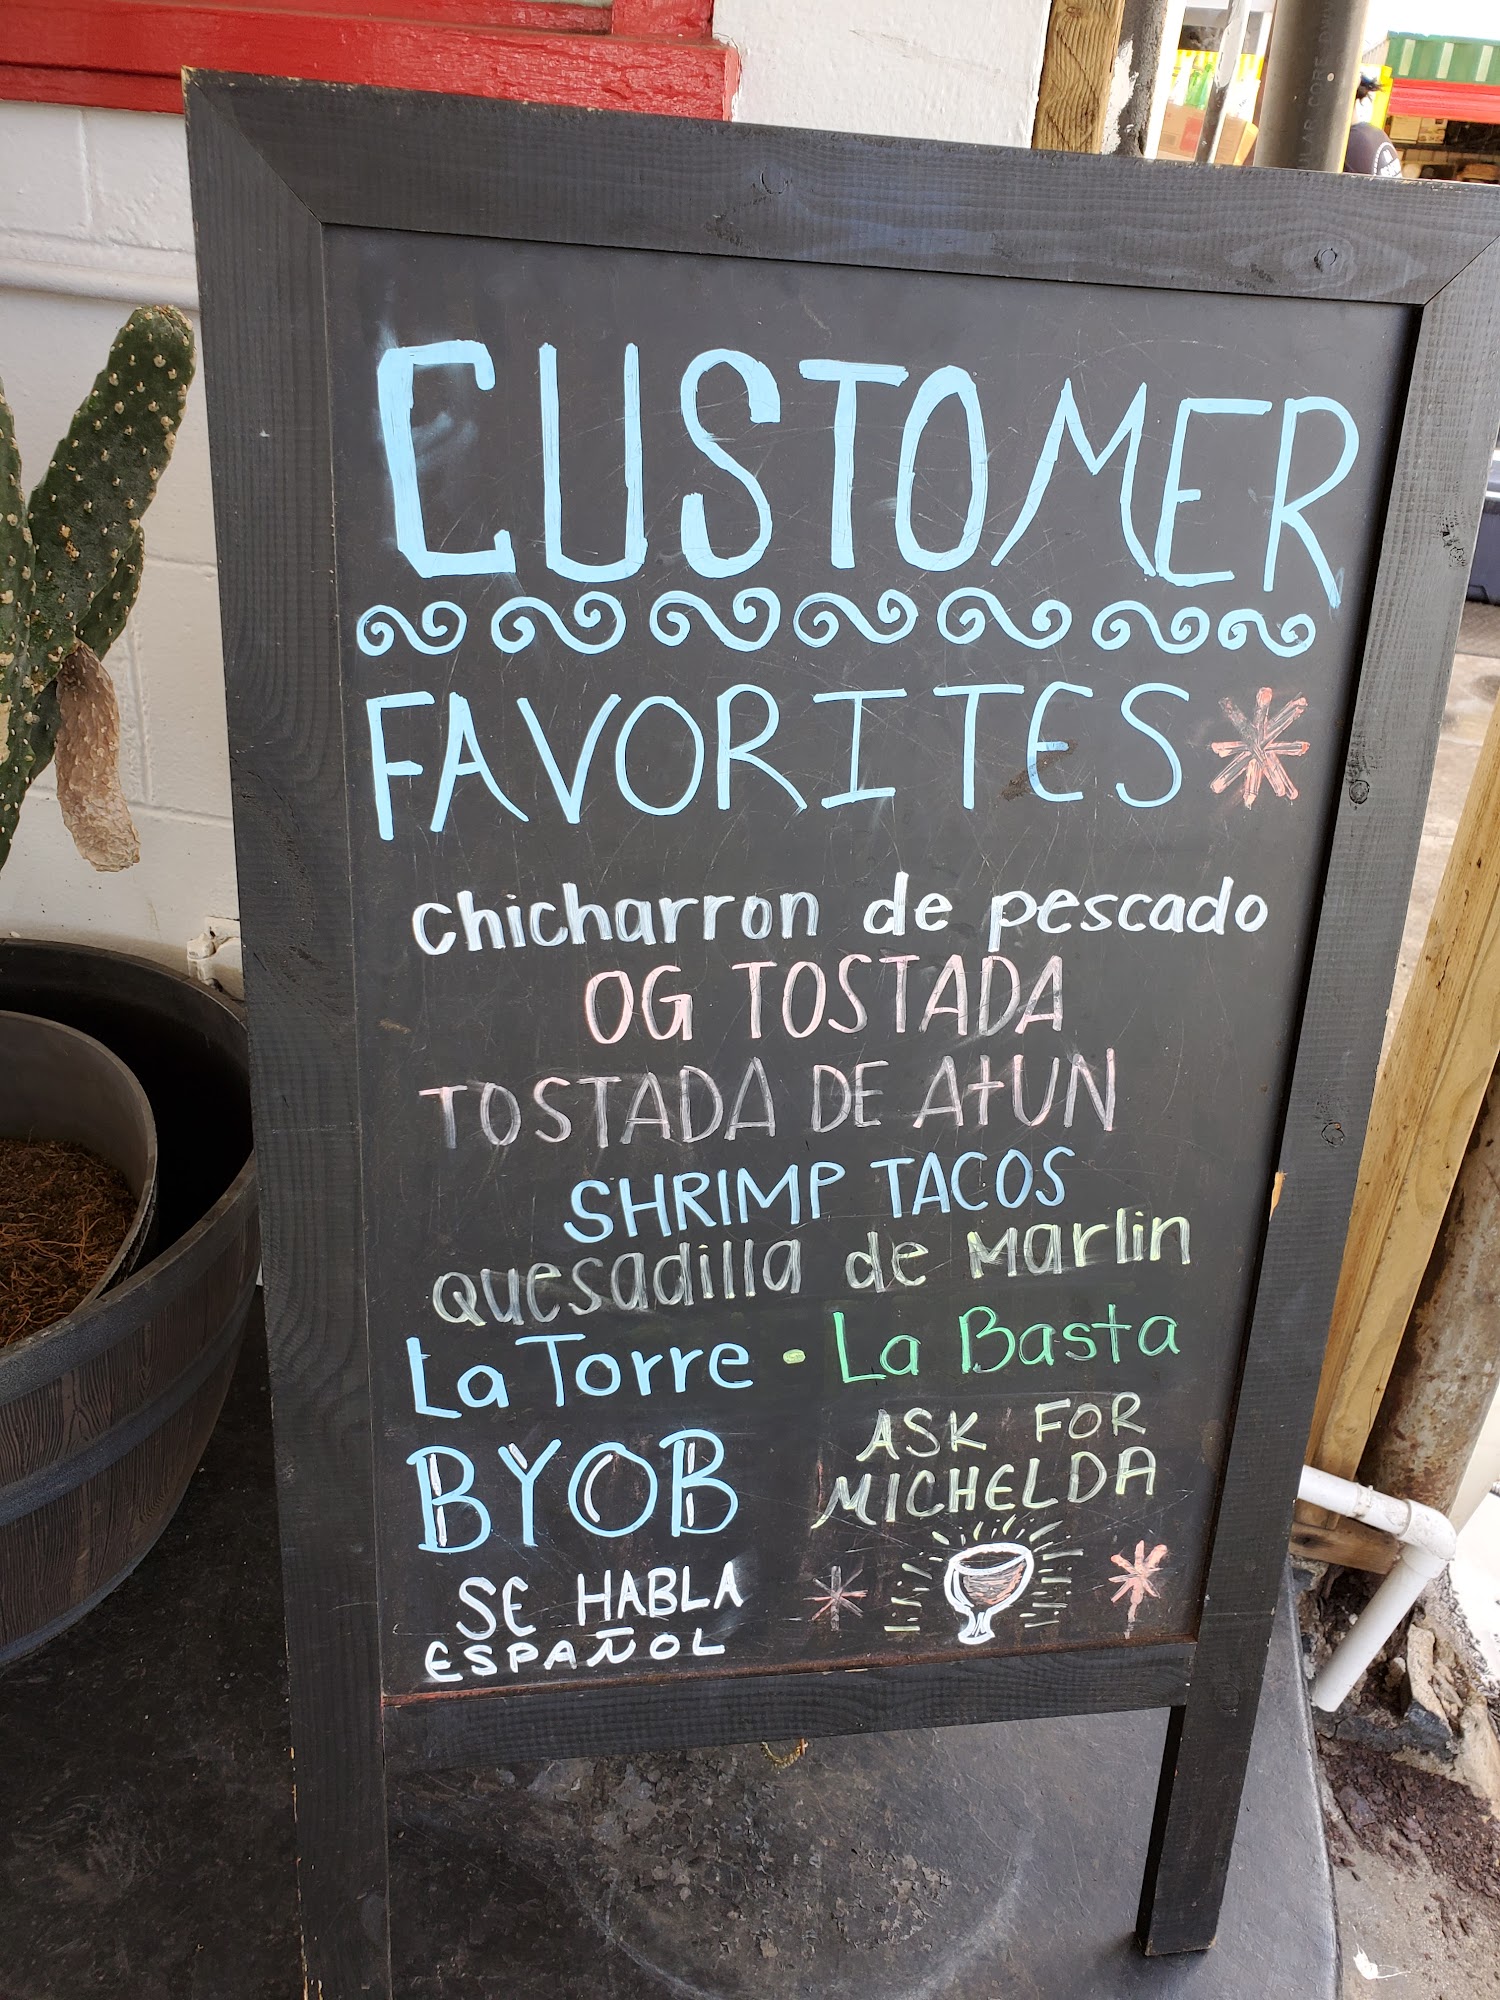 CUSTOMER
FAVORITES
chicharron de pescado
OG TOSTADA
TOSTADA DE AtUN
SHRIMP TACOS
quesadilla de Marlin
La Torre • La Basta
BYOB
ASK FOR
MICHELDA
SE HABLA
ESPAÑOL